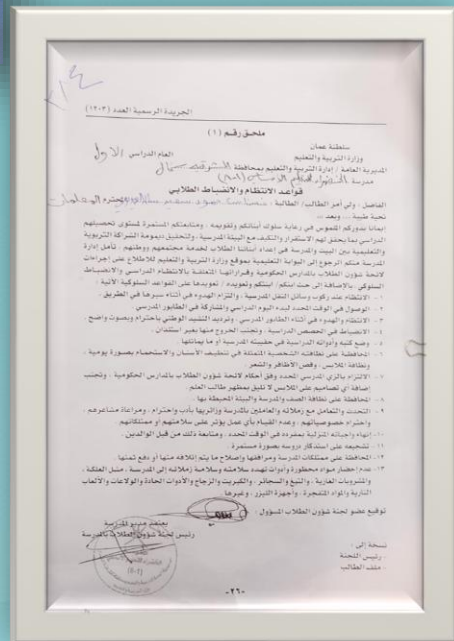 الجريدة الرسمية العدد (١٢٠٣)
ملحق رقم (١)
سلطنة عمان
وزارة التربية والتعليم
العام الدراسي
المديرية العامة / إدارة التربية والتعليم بمحافظة
مدرسة
قواعد الانتظام والانضباط الطلابي
الفاضل : ولي أمر الطالب / الطالبة : المحترم
تحية طيبة ... وبعد ،،
إيمانا بدوركم الملموس في رعاية سلوك أبنائكم وتقويمه ، ومتابعتكم المستمرة لمستوى تحصيلهم
الدراسي بما يحقق لهم الاستقرار والتكيف مع البيئة المدرسية ، ولتحقيق ديمومة الشراكة التربوية
والتعليمية بين البيت والمدرسة في إعداد أبنائنا الطلاب لخدمة مجتمعهم ووطنهم ، تأمل إدارة
المدرسة منكم الرجوع إلى البوابة التعليمية بموقع وزارة التربية والتعليم للاطلاع على إجراءات
لائحة شؤون الطلاب بالمدارس الحكومية وقراراتها المتعلقة بالانتظام الدراسي والانضباط
السلوكي . بالإضافة إلى حث ابنكم / ابنتكم وتعويده / تعويدها على القواعد السلوكية الآتية :
١ - الانتظام عند ركوب وسائل النقل المدرسية ، والتزام الهدوء في أثناء سيرها في الطريق .
٢ - الوصول في الوقت المحدد لبدء اليوم الدراسي والمشاركة في الطابور المدرسي .
٣ - الانتظام والهدوء في أثناء الطابور المدرسي ، وترديد النشيد الوطني باحترام وبصوت واضح .
٤ - الانضباط في الحصص الدراسية ، وتجنب الخروج منها بغير استئذان .
٥ - وضع كتبه وأدواته الدراسية في حقيبته المدرسية أو ما يماثلها .
٦ - المحافظة على نظافته الشخصية المتمثلة في تنظيف الأسنان والاستحمام بصورة يومية ،
ونظافة الملابس ، وقص الأظافر والشعر .
٧ - الالتزام بالزي المدرسي المحدد وفق أحكام لائحة شؤون الطلاب بالمدارس الحكومية ، وتجنب
إضافة أي تصاميم على الملابس لا تليق بمظهر طالب العلم .
٨ - المحافظة على نظافة الصف والمدرسة والبيئة المحيطة بها .
٩ - التحدث والتعامل مع زملائه والعاملين بالمدرسة وزائريها بأدب واحترام ، ومراعاة مشاعرهم ،
واحترام خصوصياتهم ، وعدم القيام بأي عمل يؤثر على سلامتهم أو ممتلكاتهم .
١٠ - إنهاء واجباته المنزلية بمفرده في الوقت المحدد ، ومتابعة ذلك من قبل الوالدين .
١١ - تشجيعه على استذكار دروسه بصورة مستمرة .
١٢ - المحافظة على ممتلكات المدرسة ومرافقها وإصلاح ما يتم إتلافه منها أو دفع ثمنها .
١٣ - عدم إحضار مواد محظورة وأدوات تهدد سلامته وسلامة زملائه إلى المدرسة ، مثل العلكة ،
والمشروبات الغازية ، والتبغ والسجائر ، والكبريت والزجاج والأدوات الحادة والولاعات والألعاب
النارية والمواد المتفجرة ، وأجهزة الليزر ، وغيرها .
توقيع عضو لجنة شؤون الطلاب المسؤول :
يعتمد مدير المدرسة
رئيس لجنة شؤون الطلاب بالمدرسة
نسخة إلى :
- رئيس اللجنة
- ملف الطالب
-٢٦٠-